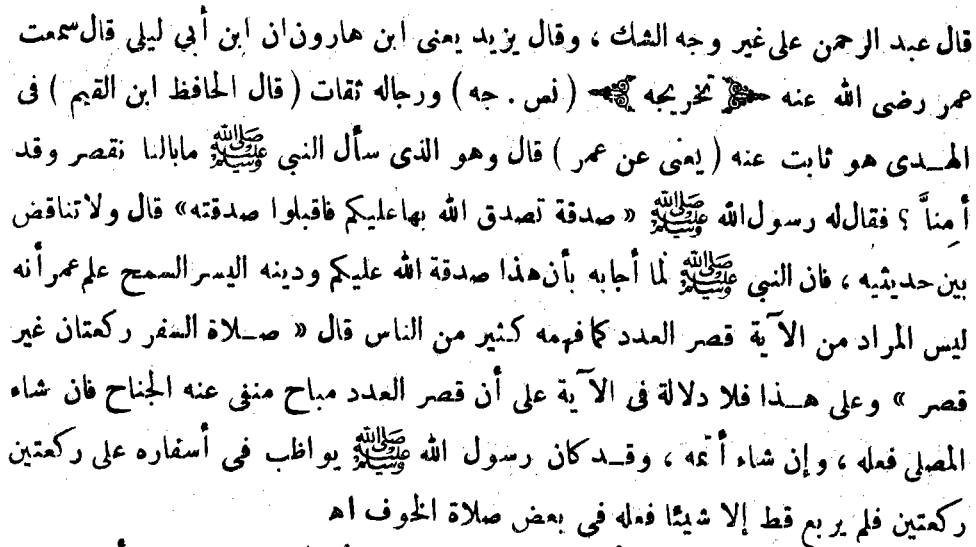 قال عبد الرحمن على غير وجه الشك ، وقال يزيد يعنى ابن هارون ان ابن أبي ليلى قال سمعت
عمر رضى الله عنه تخريجه ( نس . جه ) ورجاله ثقات ( قال الحافظ ابن القيم ) فى
الهـدى هو ثابت عنه ( يعنى عن عمر ) قال وهو الذى سأل النبي ﷺ مابالنا نقصر وقد
أمناَّ ؟ فقال له رسول الله ﷺ « صدقة تصدق الله بها عليكم فاقبلوا صدقته» قال ولا تناقض
بين حديثيه ، فان النبي ﷺ لما أجابه بأن هذا صدقة الله عليكم ودينه اليسر السمح علم عمر أنه
ليس المراد من الآية قصر العدد كما فهمه كثير من الناس قال « صـلاة السفر ركعتان غير
قصر » وعلى هـذا فلا دلالة فى الآية على أن قصر العدد مباح منفى عنه الجناح فان شاء
المصلى فعله ، وإن شاء أتمه ، وقـد كان رسول الله ﷺ يواظب فى أسفاره على ركعتين
ركعتين فلم يربع قط إلا شيئا فعله فى بعض صلاة الخوف اه